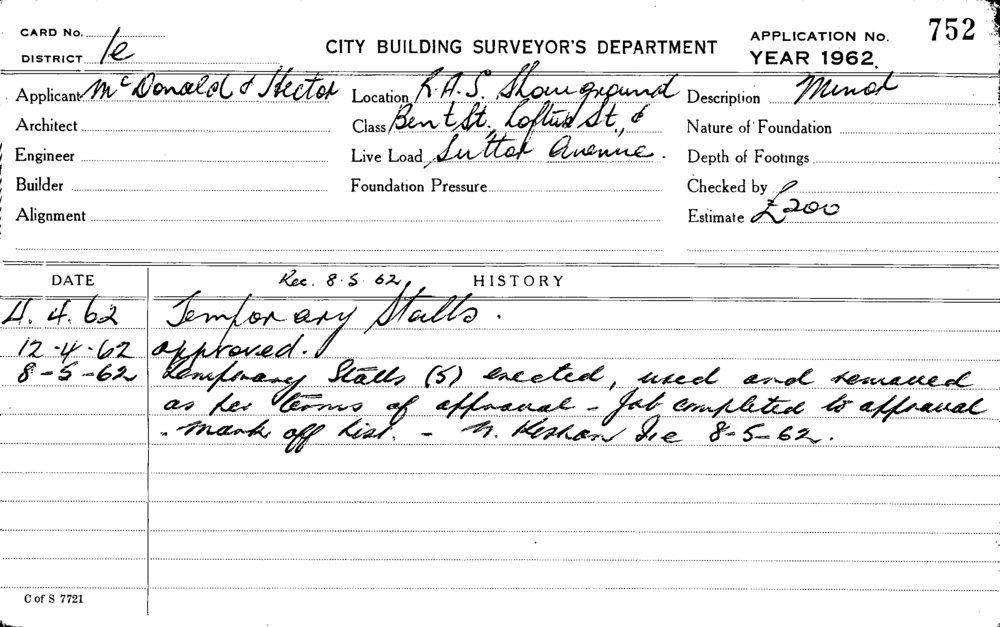 CARD No.
DISTRICT 1e
CITY BUILDING SURVEYOR'S DEPARTMENT
APPLICATION No. 752
YEAR 1962.
Applicant McDonald & Hector
Location R.A.S. Showground
Description Minor
Architect
Class Bent St., Loftus St., &
Nature of Foundation
Engineer
Live Load Suttor Avenue.
Depth of Footings
Builder
Foundation Pressure
Checked by
Alignment
Estimate £200
DATE
Rec. 8.5.62
HISTORY
4.4.62 Temporary Stalls.
12-4-62 approved.
8-5-62 Temporary Stalls (5) erected, used and removed
as per terms of approval - Job completed to approval
. Mark off List. - 8-5-62.
C of S 7721